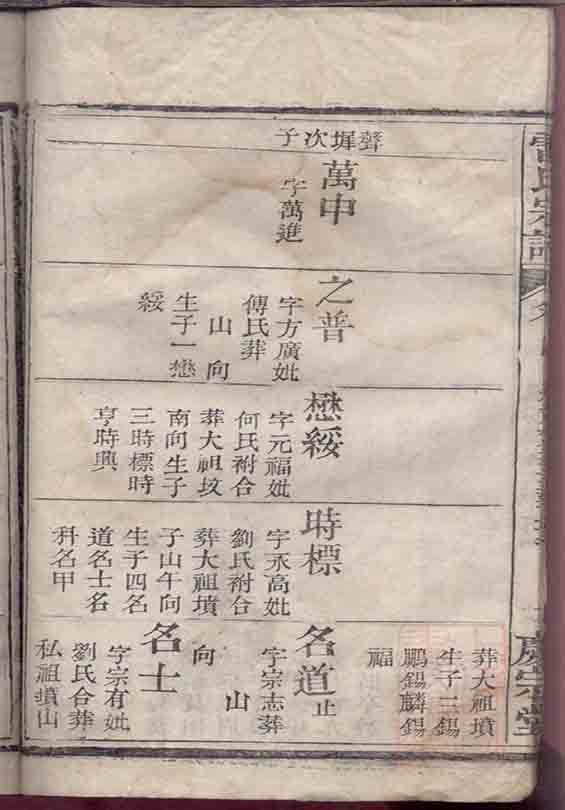 聲墀次子
萬申
字萬進
之普
字方廣妣
傅氏葬
山向
生子一懋
綏
懋綏
字元福妣
何氏祔合
葬大祖坟
南向生子
三時標時
亨時興
時標
字永高妣
劉氏祔合
葬大祖墳
子山午向
生子四名
道名士名
科名甲
葬大祖墳
生子三錫
鵬錫麟錫
福
名道止
字宗志葬
山
向
名士
字宗有妣
劉氏合葬
私祖墳山
慶宗堂